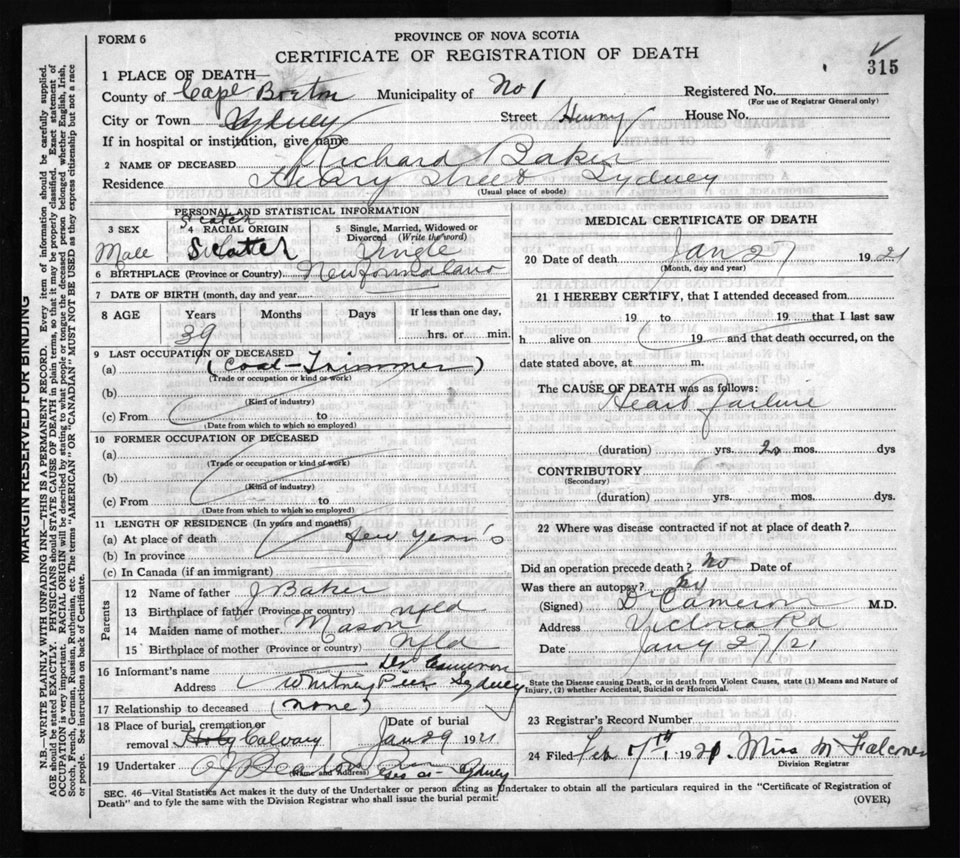 FORM 6
PROVINCE OF NOVA SCOTIA
CERTIFICATE OF REGISTRATION OF DEATH
315
1 PLACE OF DEATH—
County of Cape Breton Municipality of No 1 Registered No.
(For use of Registrar General only)
City or Town Sydney Street Henry House No.
If in hospital or institution, give name
2 NAME OF DECEASED Richard Baker
Residence Henry Street Sydney
(Usual place of abode)
PERSONAL AND STATISTICAL INFORMATION
3 SEX Male
4 RACIAL ORIGIN Scotch
5 Single, Married, Widowed or Divorced (Write the word) Single
6 BIRTHPLACE (Province or Country) Newfoundland
7 DATE OF BIRTH (month, day and year)
8 AGE Years Months Days If less than one day,
39 hrs. or min.
9 LAST OCCUPATION OF DECEASED
(a) (Coal-Trimmer)
(Trade or occupation or kind of work)
(b)
(Kind of industry)
(c) From to
(Date from which to which so employed)
10 FORMER OCCUPATION OF DECEASED
(a)
(Trade or occupation or kind of work)
(b)
(Kind of industry)
(c) From to
(Date from which to which so employed)
11 LENGTH OF RESIDENCE (In years and months)
(a) At place of death few years
(b) In province
(c) In Canada (if an immigrant)
Parents
12 Name of father J Baker
13 Birthplace of father (Province or country) Nfld
14 Maiden name of mother Mason
15 Birthplace of mother (Province or country) Nfld
16 Informant's name Dr Cameron
Address Whitney Pier Sydney
17 Relationship to deceased (none)
18 Place of burial, cremation or removal Holy Calvary
Date of burial Jan 29 1921
19 Undertaker
(Name and Address) Sydney
MEDICAL CERTIFICATE OF DEATH
20 Date of death Jan 27 1921
(Month, day and year)
21 I HEREBY CERTIFY, that I attended deceased from
19 to 19 that I last saw
h alive on 19 and that death occurred, on the
date stated above, at m.
The CAUSE OF DEATH was as follows:
Heart failure
(duration) yrs. mos. dys
CONTRIBUTORY
(Secondary)
(duration) yrs. mos. dys.
22 Where was disease contracted if not at place of death?
Did an operation precede death? No Date of
Was there an autopsy? No
(Signed) Dr Cameron M.D.
Address Victoria Rd
Date Jany 27/21
State the Disease causing Death, or in death from Violent Causes, state (1) Means and Nature of
Injury, (2) whether Accidental, Suicidal or Homicidal.
23 Registrar's Record Number
24 Filed Feb 1921. Miss M Falconer
Division Registrar
SEC. 46—Vital Statistics Act makes it the duty of the Undertaker or person acting as Undertaker to obtain all the particulars required in the "Certificate of Registration of
Death" and to fyle the same with the Division Registrar who shall issue the burial permit.
(OVER)
MARGIN RESERVED FOR BINDING
N.B.—WRITE PLAINLY WITH UNFADING INK—THIS IS A PERMANENT RECORD. Every item of information should be carefully supplied.
AGE should be stated EXACTLY. PHYSICIANS should STATE CAUSE OF DEATH in plain terms, so that it may be properly classified. Exact statement of
OCCUPATION is very important. RACIAL ORIGIN will be described by stating to what people or tongue the deceased person belonged whether English, Irish,
Scotch, French, German, Russian, Ruthenian, etc. The terms "AMERICAN" OR "CANADIAN" MUST NOT BE USED as they express citizenship but not a race
or people. See instructions on back of Certificate.